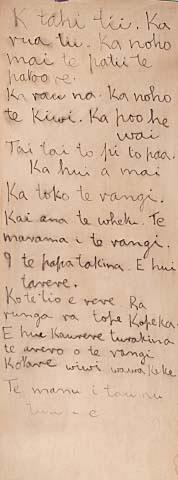 K tahi tii. Ka
rua tii. Ka noho
mai te patii te
patore.
Ka rau na. Ka noho
te kiwi. Ka poo he
wai
Tai tai to pi to paa.
Ka hui a mai
Ka toko te rangi.
Kai ana te whetu. Te
marama i te rangi.
I te papa takina. E hui
tarere.
Ko te tio e rere. Ra
runga ra tope Kopeka.
E hue Kaurere turakina
te arero o te rangi
Kotare wiwi wawa keke
Te manu i tau nu